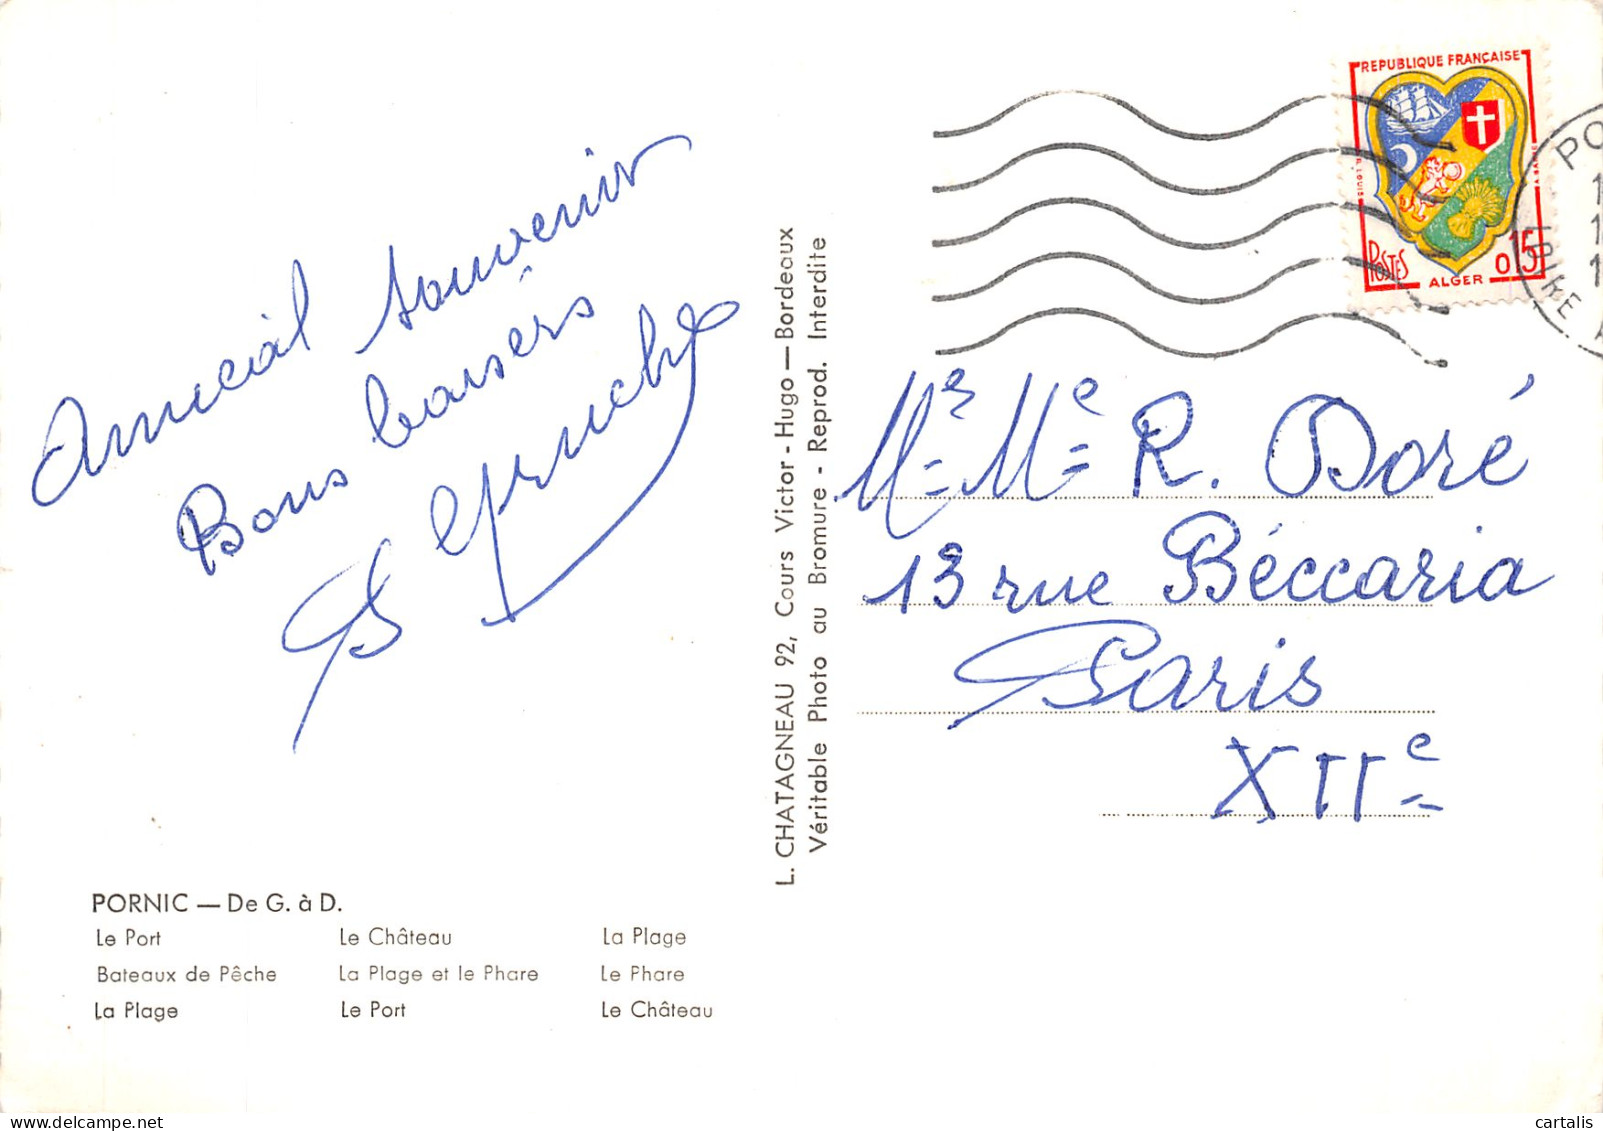 Amical souvenir
Bons baisers
PORNIC — De G. à D.
Le Port Le Château La Plage
Bateaux de Pêche La Plage et le Phare Le Phare
La Plage Le Port Le Château
L. CHATAGNEAU 92, Cours Victor - Hugo — Bordeaux
Véritable Photo au Bromure - Reprod. Interdite
REPUBLIQUE FRANÇAISE
POSTES
ALGER
0,15
PO
LOIRE
Mr Me R. Doré
13 rue Béccaria
Paris
XIIe
cartalis